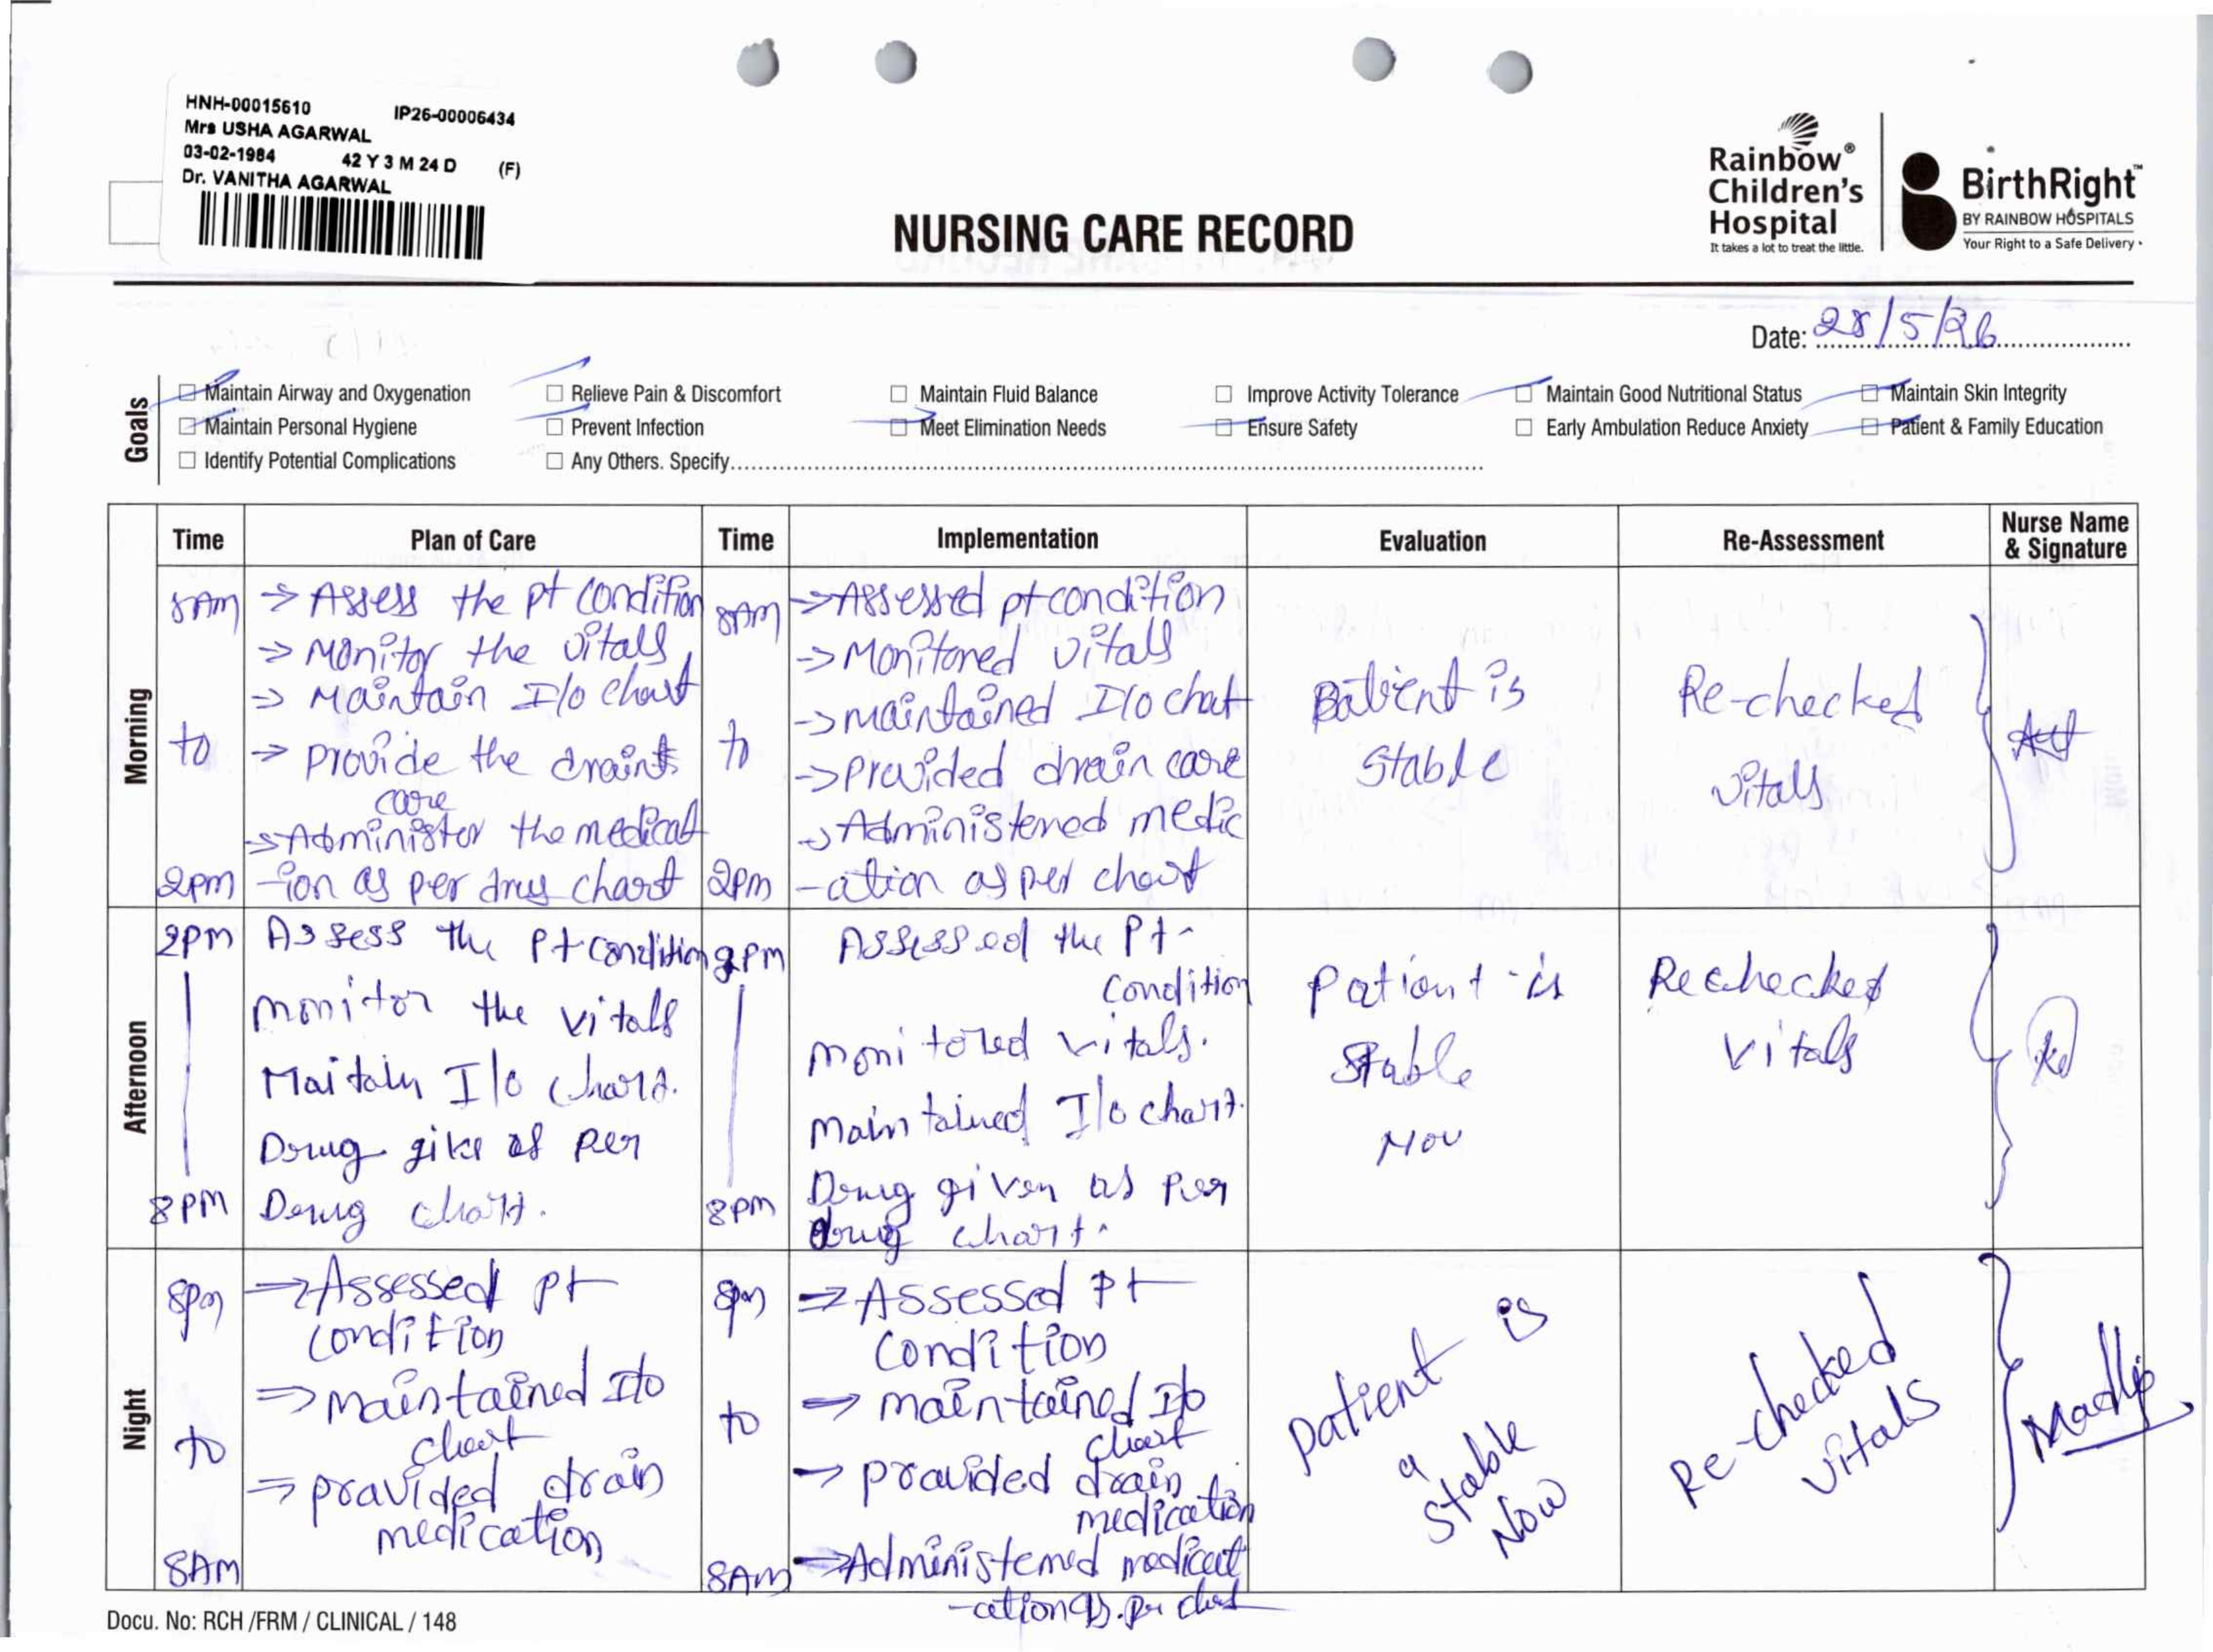 HNH-00015610 IP26-00006434
Mrs USHA AGARWAL
03-02-1984 42 Y 3 M 24 D (F)
Dr. VANITHA AGARWAL
NURSING CARE RECORD
Rainbow®
Children's
Hospital
It takes a lot to treat the little.
BirthRight™
BY RAINBOW HOSPITALS
Your Right to a Safe Delivery
Date: 28/5/26
Goals
Maintain Airway and Oxygenation Relieve Pain & Discomfort Maintain Fluid Balance Improve Activity Tolerance Maintain Good Nutritional Status Maintain Skin Integrity
Maintain Personal Hygiene Prevent Infection Meet Elimination Needs Ensure Safety Early Ambulation Reduce Anxiety Patient & Family Education
Identify Potential Complications Any Others. Specify
Time Plan of Care Time Implementation Evaluation Re-Assessment Nurse Name
& Signature
Morning
8AM
to
2pm
→ Assess the pt condition
→ Monitor the vitals
→ Maintain I/o chart
→ Provide the drain
care
→ Administer the medicat
-ion as per drug chart
8AM
to
2pm
→ Assessed pt condition
→ Monitored vitals
→ maintained I/o chat
→ Provided drain care
→ Administered medic
-ation as per chart
Patient is
Stable
Re-checked
vitals
Afternoon
2pm
8pm
Assess the Pt condition
monitor the vitals
Maitain I/o chart.
Drug give as per
Drug chart.
2pm
8pm
Assessed the Pt-
condition
monitored vitals.
Maintained I/o chart.
Drug given as per
drug chart.
Patient is
Stable
Nov
Rechecked
vitals
Night
8pm
to
8AM
→ Assessed pt
condition
→ maintained I/o
chart
→ provided drain
medication
8pm
to
8AM
→ Assessed pt
condition
→ maintained I/o
chart
→ provided drain
medication
→ Administered medicat
-cation as per chart
patient is
a
stable
Now
Re-checked
vitals
Docu. No: RCH /FRM / CLINICAL / 148